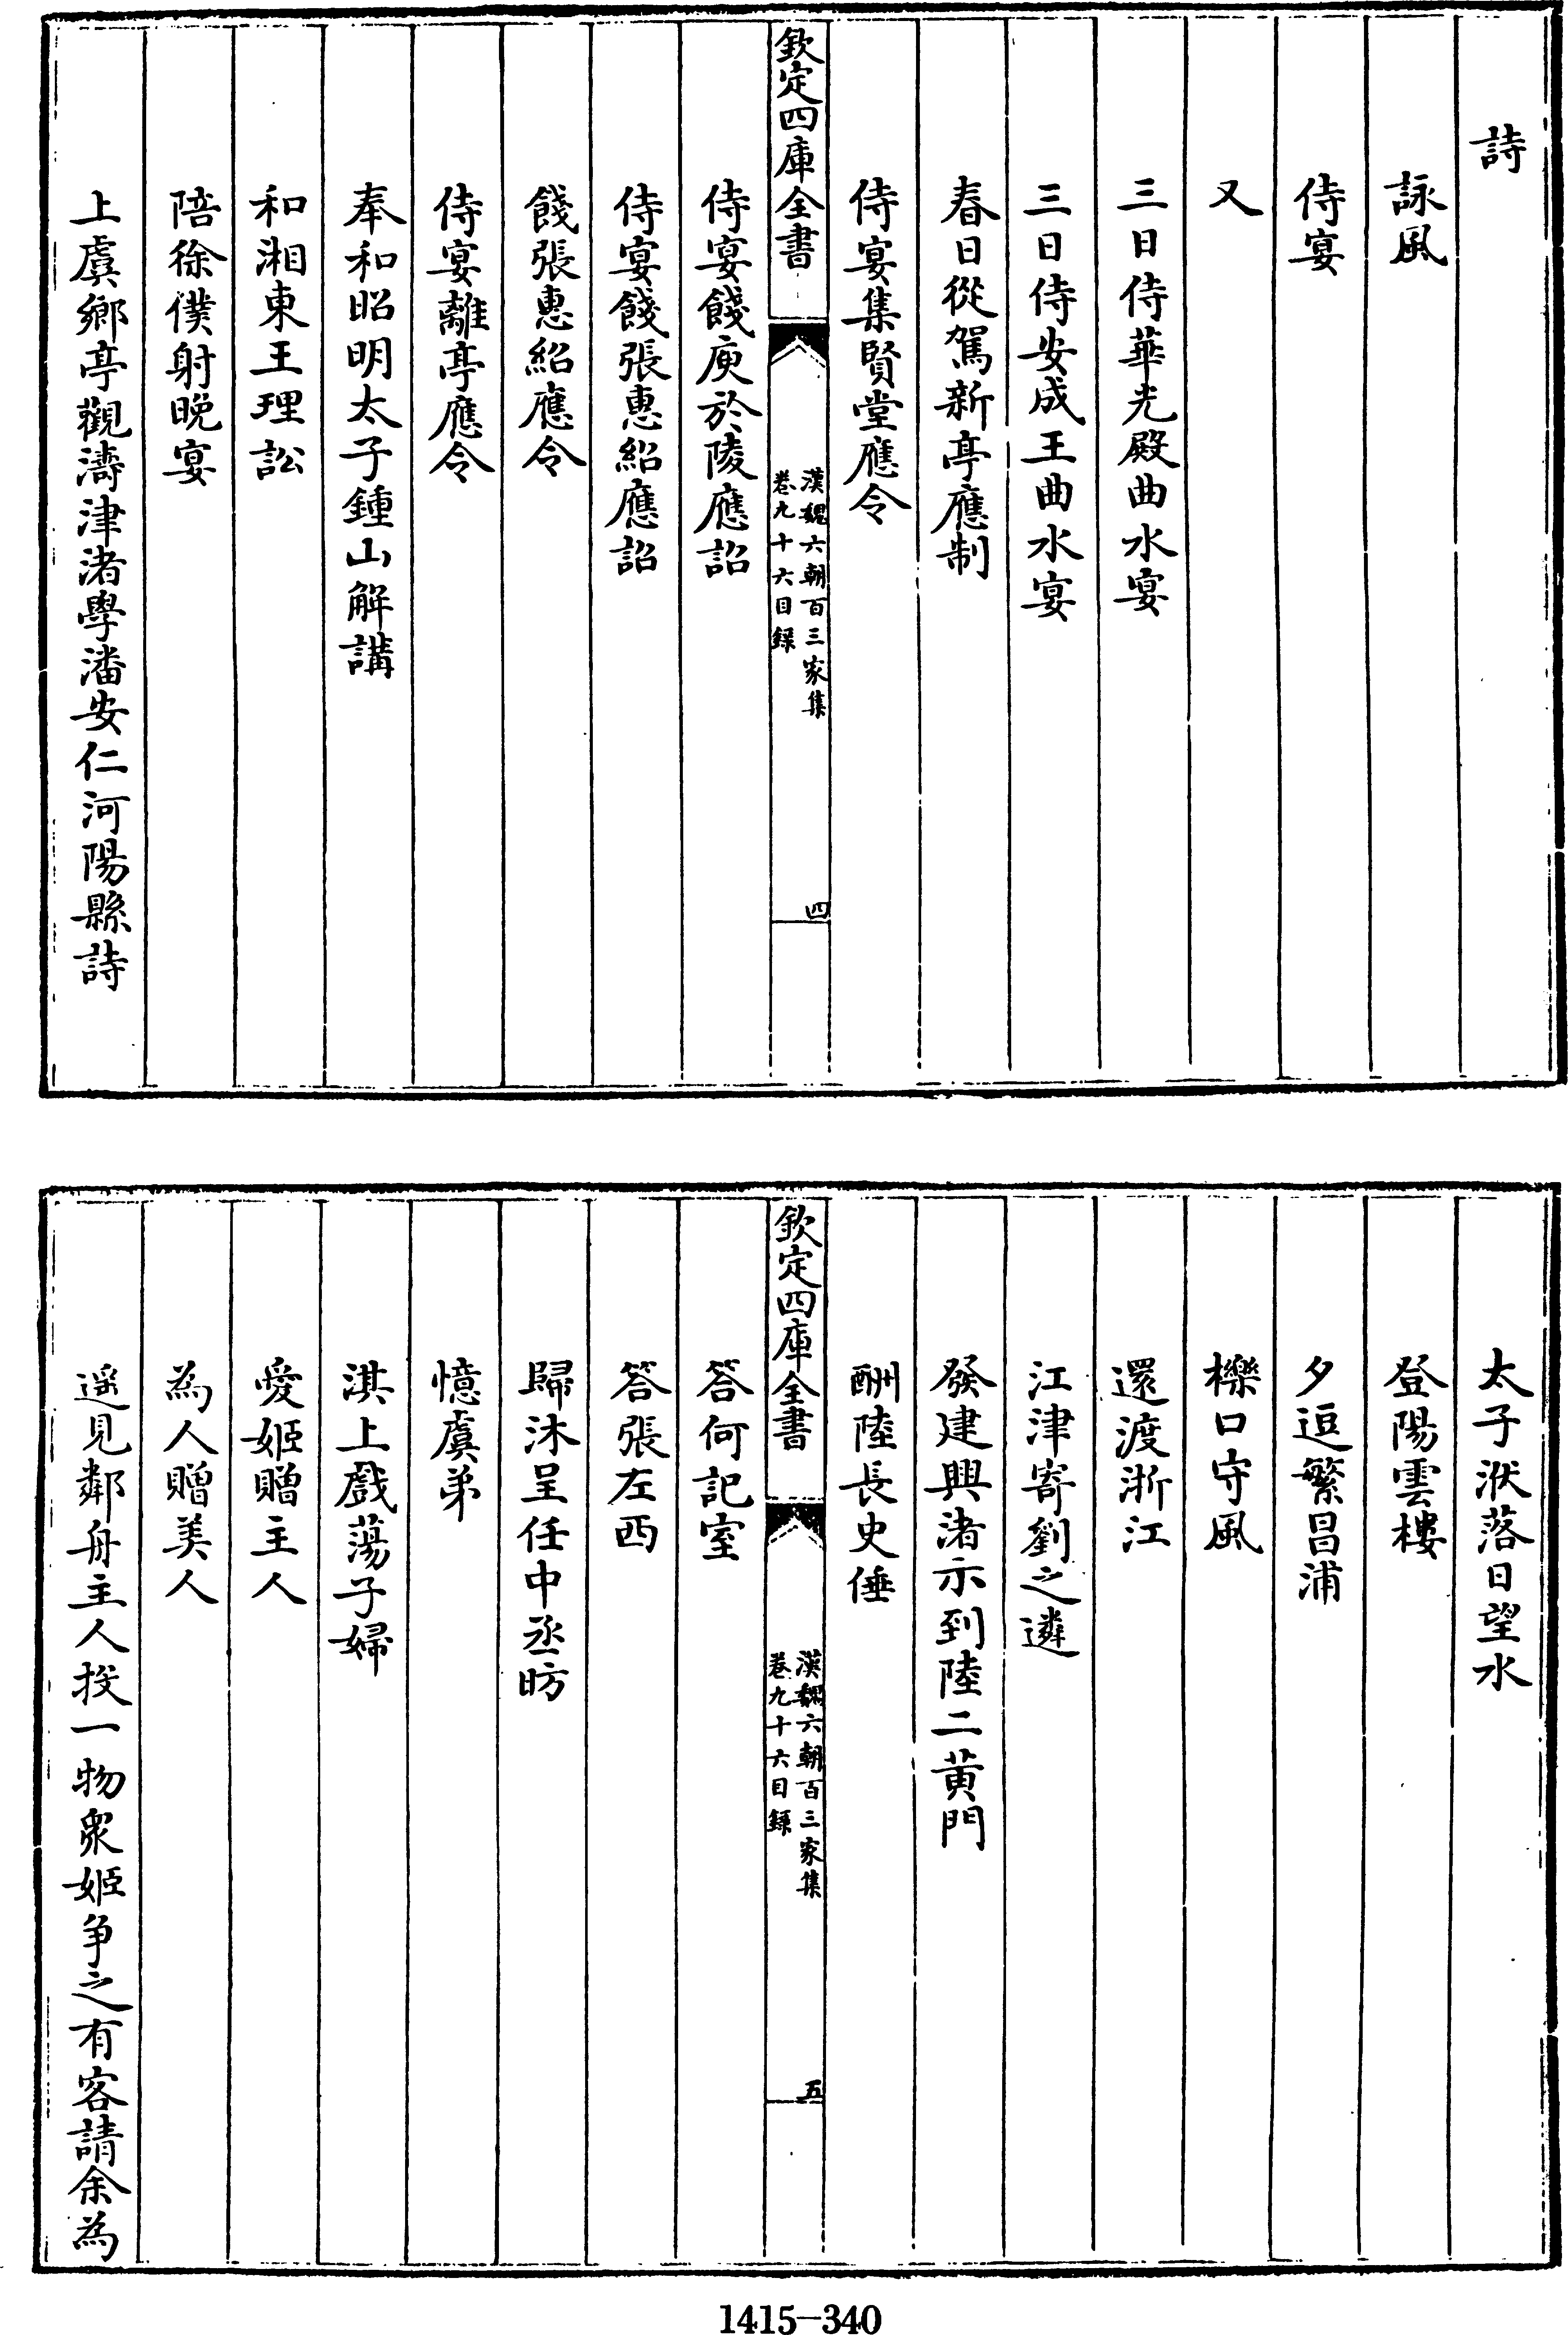 詩
詠風
侍宴
又
三日侍華光殿曲水宴
三日侍安成王曲水宴
春日從駕新亭應制
侍宴集賢堂應令
欽定四庫全書
漢魏六朝百三家集
卷九十六目録
四
侍宴餞庾於陵應詔
侍宴餞張惠紹應詔
餞張惠紹應令
侍宴離亭應令
奉和昭明太子鍾山解講
和湘東王理訟
陪徐僕射晚宴
上虞鄉亭觀濤津渚學潘安仁河陽縣詩
太子洑落日望水
登陽雲樓
夕逗繁昌浦
櫟口守風
還渡浙江
江津寄劉之遴
發建興渚示到陸二黄門
酬陸長史倕
欽定四庫全書
漢魏六朝百三家集
卷九十六目録
五
答何記室
答張左西
歸沐呈任中丞昉
憶虞弟
淇上戲蕩子婦
愛姬贈主人
為人贈美人
遥見鄰舟主人投一物衆姬争之有客請余為
1415-340